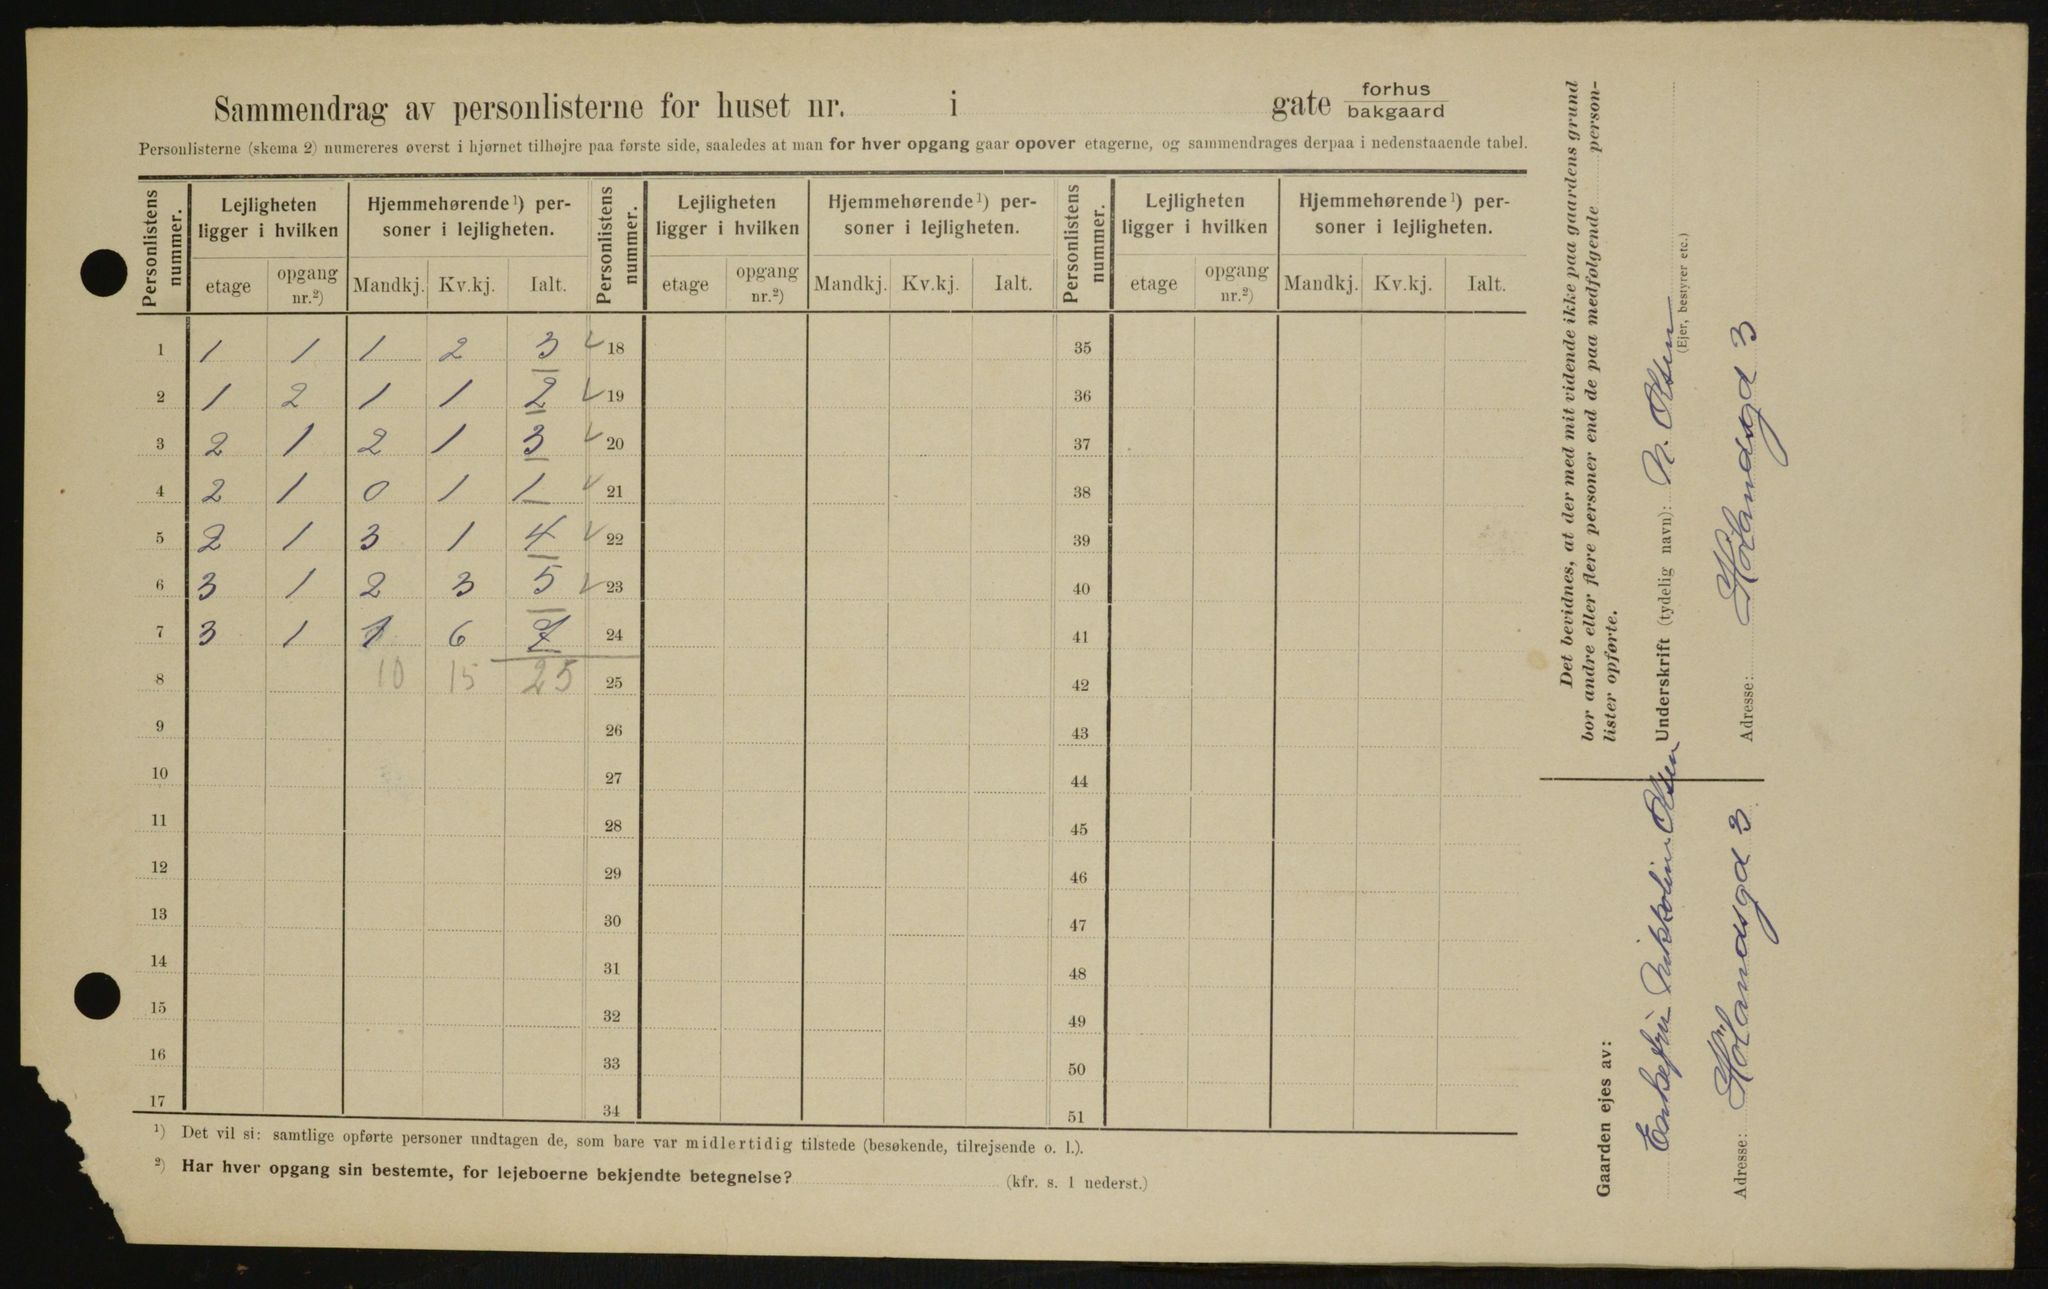 Sammendrag av personlisterne for huset nr. i gate forhus / bakgaard
Personlisterne (skema 2) numereres øverst i hjørnet tilhøjre paa første side, saaledes at man for hver opgang gaar opover etagerne, og sammendrages derpaa i nedenstaaende tabel.
Personlistens nummer. Lejligheten ligger i hvilken Hjemmehørende ¹) personer i lejligheten. Personlistens nummer. Lejligheten ligger i hvilken Hjemmehørende ¹) personer i lejligheten. Personlistens nummer. Lejligheten ligger i hvilken Hjemmehørende ¹) personer i lejligheten.
etage opgang nr.²) Mandkj. Kv.kj. Ialt. etage opgang nr.²) Mandkj. Kv.kj. Ialt. etage opgang nr.²) Mandkj. Kv.kj. Ialt.
1 1 1 1 2 3 18 35
2 1 2 1 1 2 19 36
3 2 1 2 1 3 20 37
4 2 1 0 1 1 21 38
5 2 1 3 1 4 22 39
6 3 1 2 3 5 23 40
7 3 1 1 6 7 24 41
8 10 15 25 25 42
9 26 43
10 27 44
11 28 45
12 29 46
13 30 47
14 31 48
15 32 49
16 33 50
17 34 51
¹) Det vil si: samtlige opførte personer undtagen de, som bare var midlertidig tilstede (besøkende, tilrejsende o. l.).
²) Har hver opgang sin bestemte, for lejeboerne bekjendte betegnelse? (kfr. s. 1 nederst.)
Det bevidnes, at der med mit vidende ikke paa gaardens grund
bor andre eller flere personer end de paa medfølgende personlister opførte.
Underskrift (tydelig navn): N. Olsen
(Ejer, bestyrer etc.)
Adresse: Hölandsgd 3
Gaarden ejes av:
Enkefru Nikkoline Olsen
Adresse: Hölandsgd 3